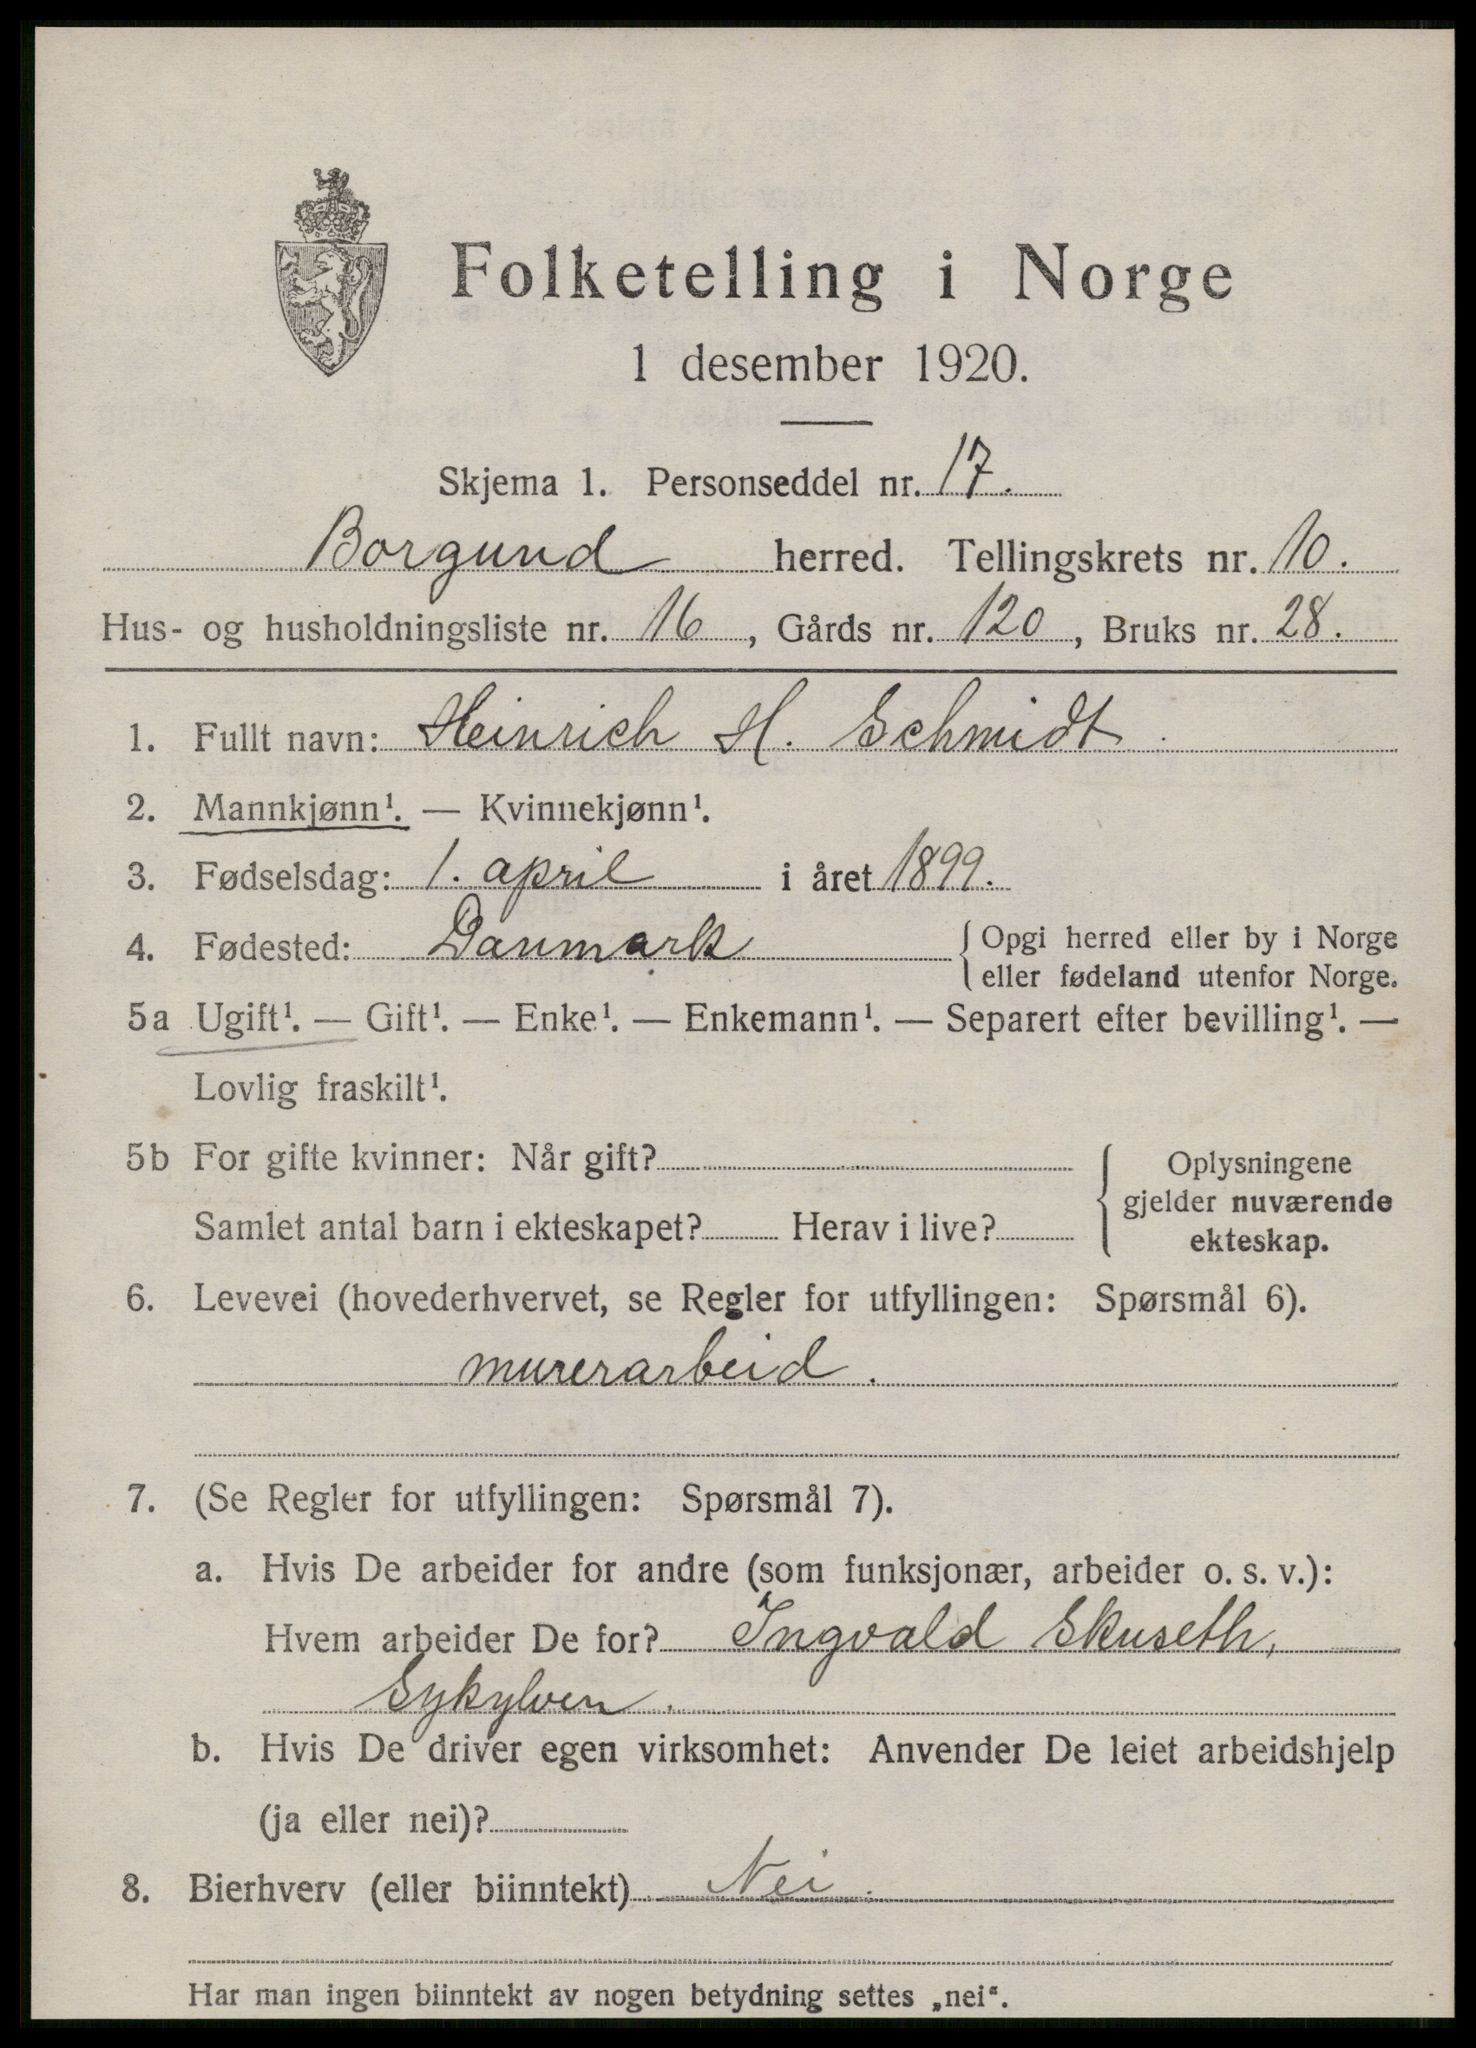 Folketelling i Norge
1 desember 1920.
Skjema 1. Personseddel nr. 17.
Borgund herred. Tellingskrets nr. 10.
Hus- og husholdningsliste nr. 16, Gårds nr. 120, Bruks nr. 28.
1. Fullt navn: Heinrich H. Schmidt.
2. Mannkjønn¹. — Kvinnekjønn¹.
3. Fødselsdag: 1. april i året 1899.
4. Fødested: Danmark { Opgi herred eller by i Norge
eller fødeland utenfor Norge.
5a Ugift¹. — Gift¹. — Enke¹. — Enkemann¹. — Separert efter bevilling¹. —
Lovlig fraskilt¹.
5b For gifte kvinner: Når gift?
Samlet antal barn i ekteskapet? Herav i live?
{ Oplysningene
gjelder nuværende
ekteskap.
6. Levevei (hovederhvervet, se Regler for utfyllingen: Spørsmål 6).
murerarbeid.
7. (Se Regler for utfyllingen: Spørsmål 7).
a. Hvis De arbeider for andre (som funksjonær, arbeider o. s. v.):
Hvem arbeider De for? Ingvald Skuseth,
Sykylven.
b. Hvis De driver egen virksomhet: Anvender De leiet arbeidshjelp
(ja eller nei)?
8. Bierhverv (eller biinntekt) Nei.
Har man ingen biinntekt av nogen betydning settes „nei".